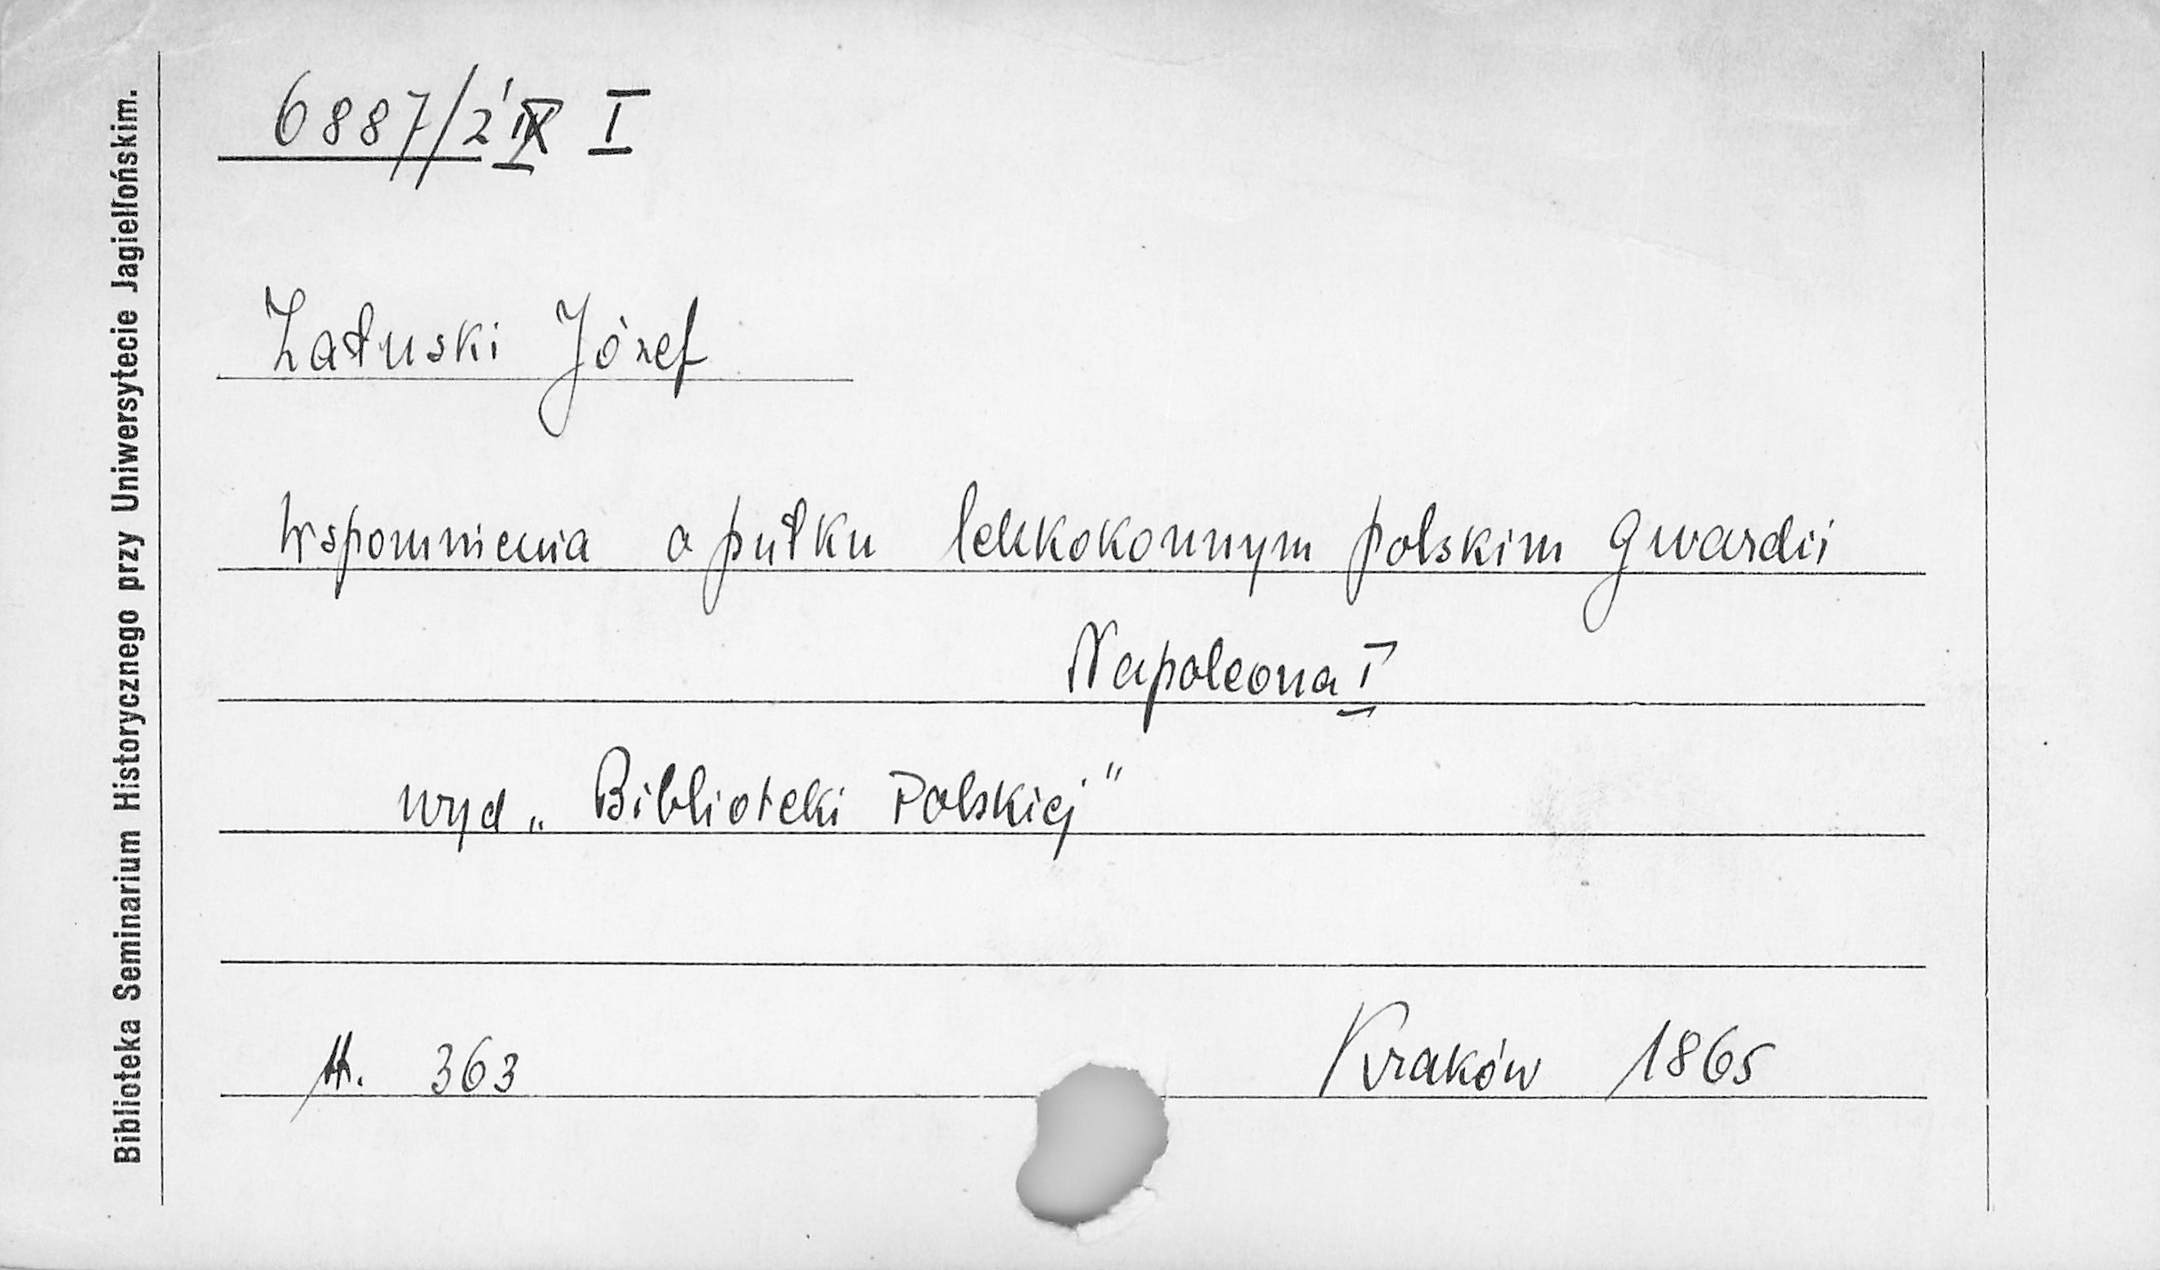 Biblioteka Seminarium Historycznego przy Uniwersytecie Jagiellońskim.
6887/2 I
Załuski Józef
Wspomnienia o pułku lekkokonnym polskim Gwardii
Napoleona I
wyd „Biblioteki Polskiej"
363 Kraków 1865